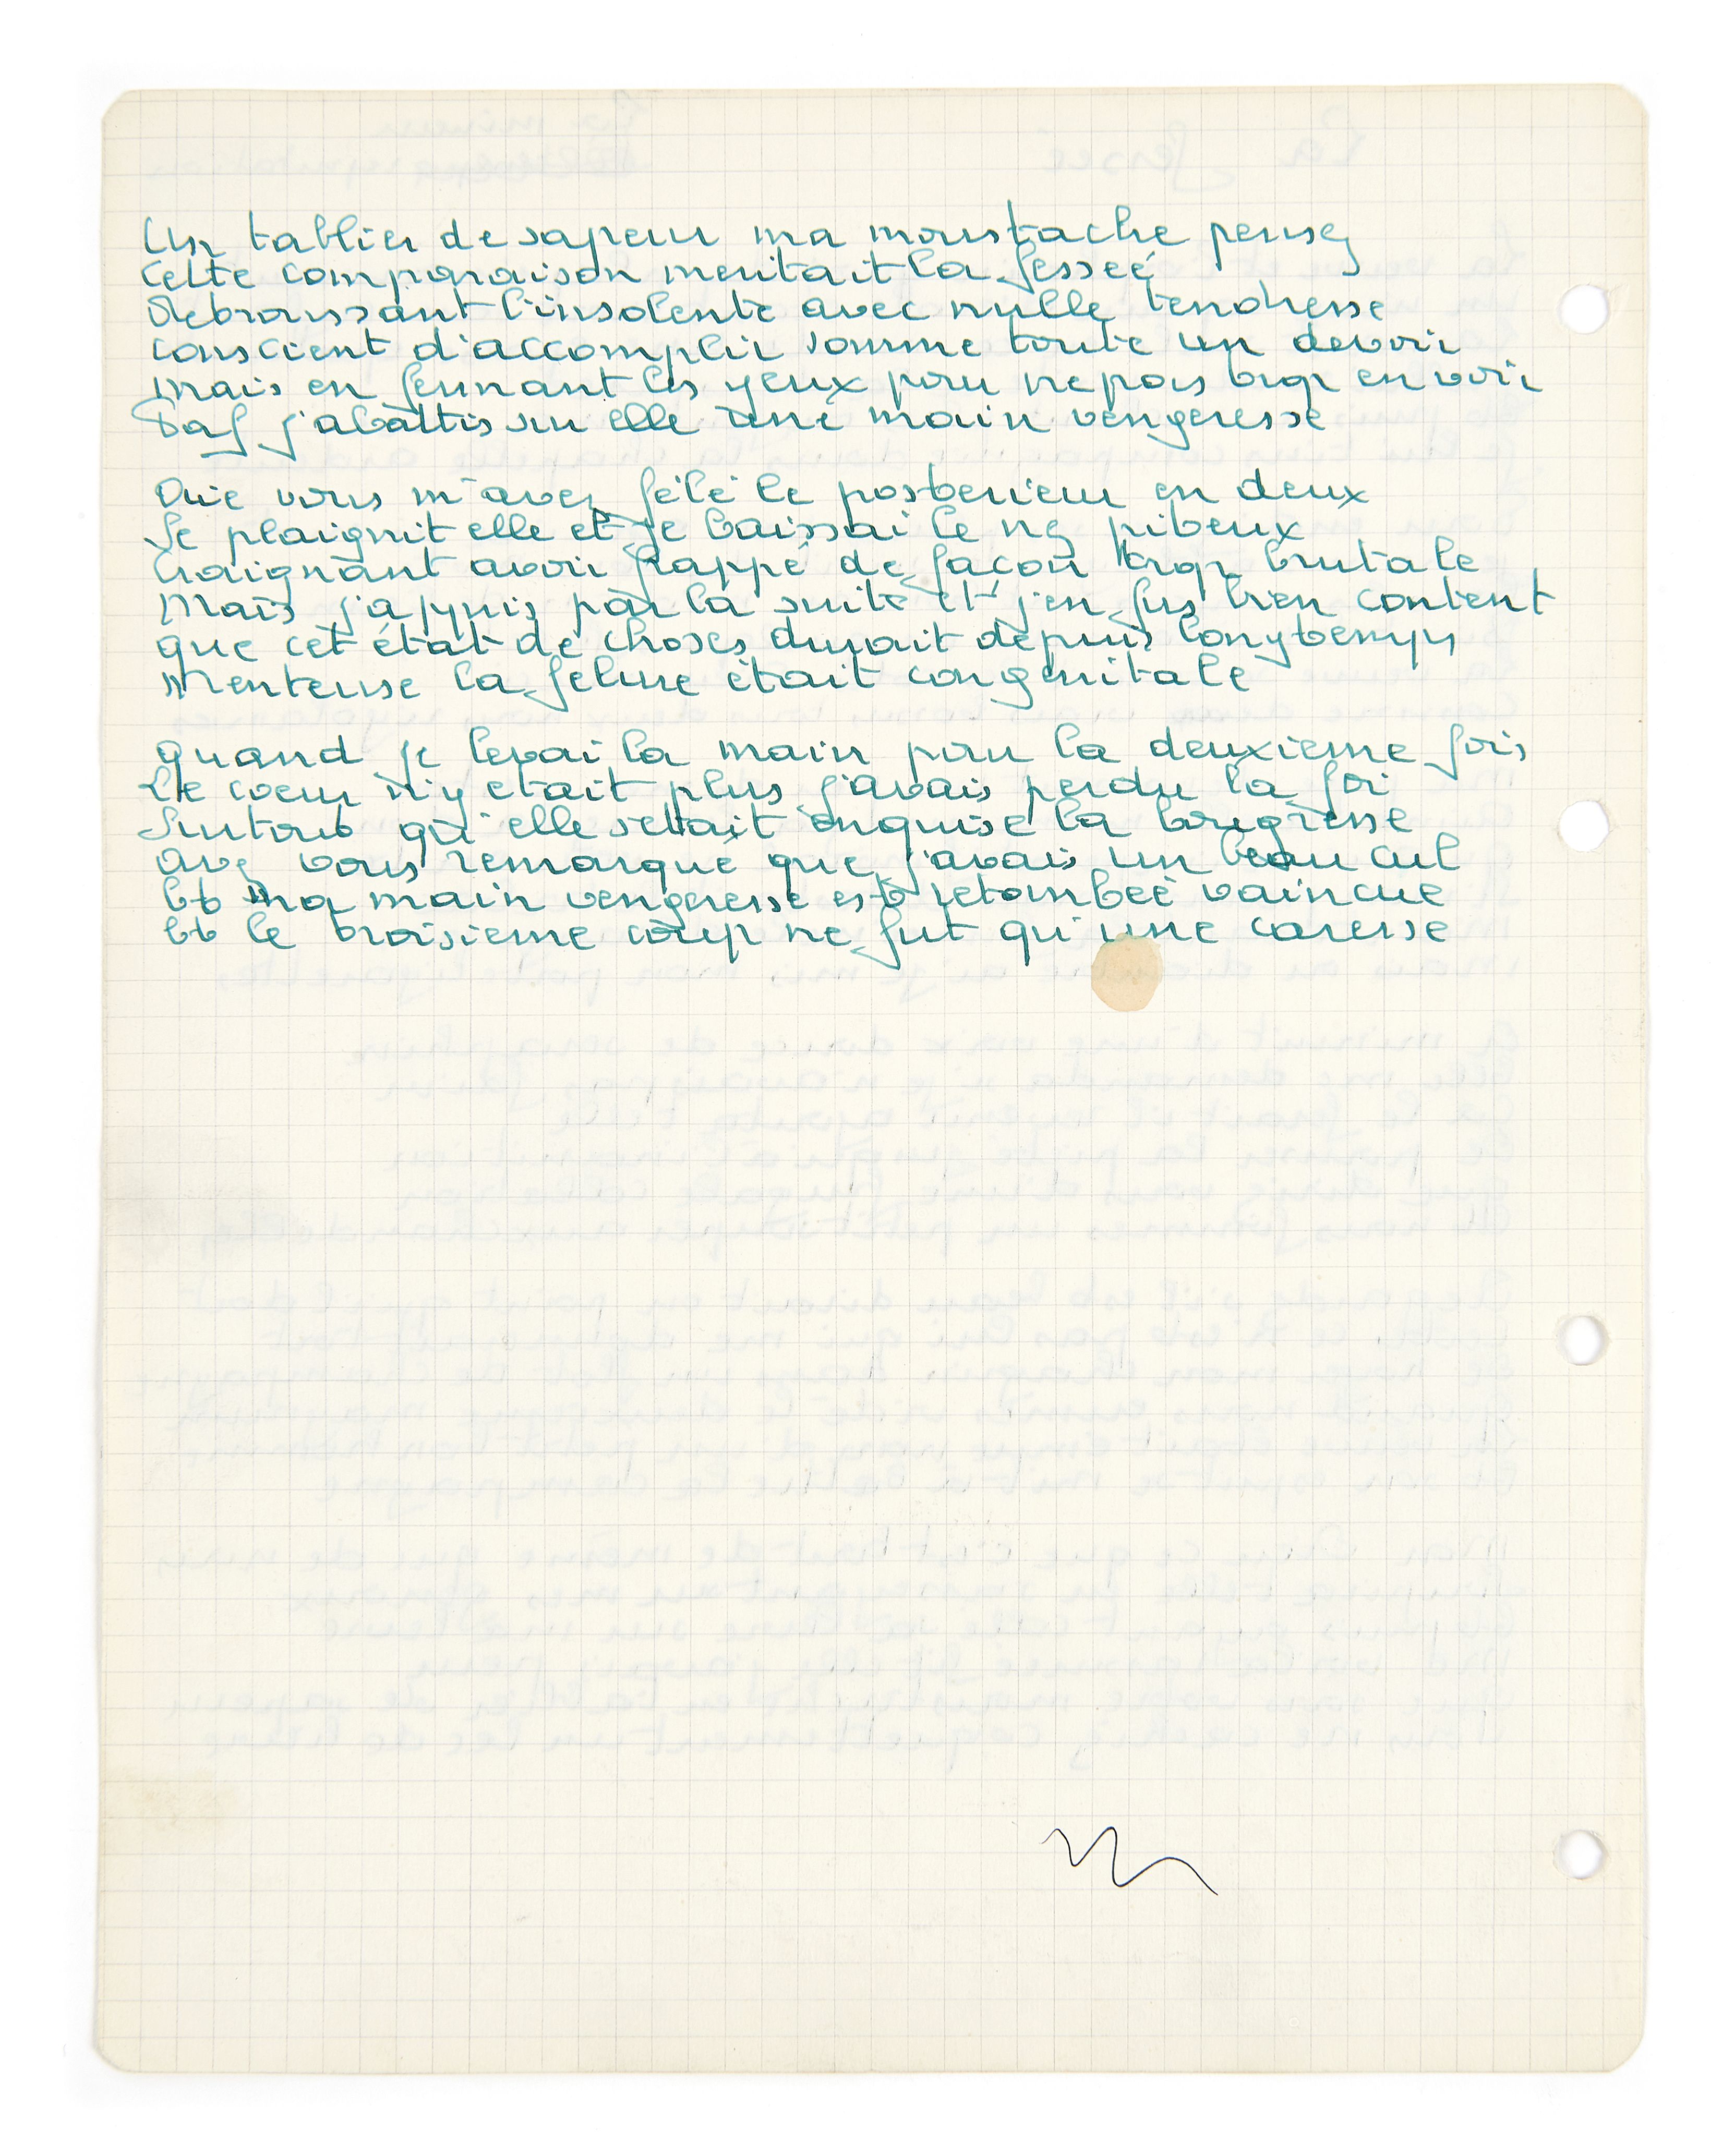 Un tablier de sapeur ma moustache pensez
Cette comparaison meritait la fesseé
Retroussant l'insolente avec nulle tendresse
conscient d'accomplir somme toute un devoir
mais en fermant les yeux pour ne pas trop en voir
Paf j'abattis sur elle une main vengeresse

Ouie vous m'avez félé le posterieur en deux
Se plaignit elle et je baissai le nez piteux
Craignant avoir frappé de façon trop brutale
Mais j'appris par la suite et j'en fus bien content
que cet état de choses durait depuis longtemps
Menteuse la felure était congenitale

quand je levai la main pour la deuxieme fois
Le coeur n'y etait plus j'avais perdu la foi
Surtout qu'elle s'etait enquise la bougresse
avez vous remarqué que j'avais un beau cul
Et ma main vengeresse est retombeé vaincue
Et le troisieme coup ne fut qu'une caresse